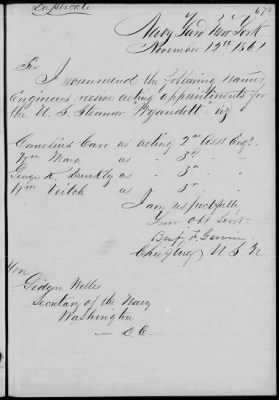 Navy Yard New York
November 12th 1861
Sir
I recommend the following names
Engineers receive acting appointments for
the U. S. Steamer "Wyandott" viz
Cornelius Carr as acting 2nd Asst Engr.
Wm Mara as " 3rd " "
George K. as " 3rd " "
Wm Veitch as " 3rd " "
I am respectfully
Your Obt Servt
Benj. F. Garvin
Chf Engr U S N
Hon
Gideon Welles
Secretary of the Navy
Washington
D. C.